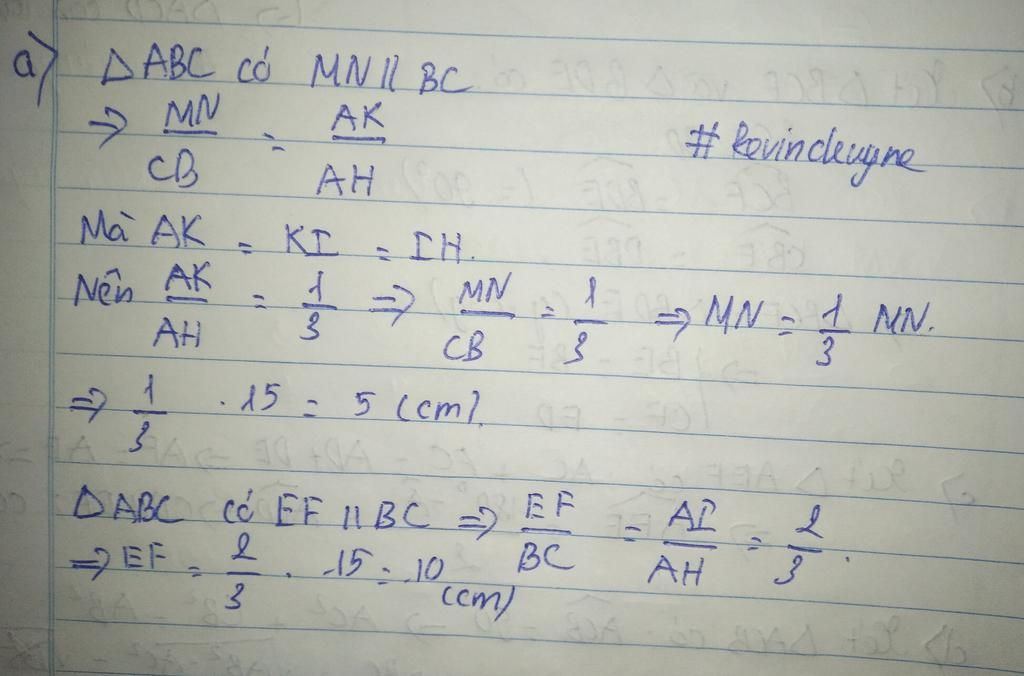 a) ΔABC có MN || BC
⇒ MN/CB = AK/AH
Mà AK = KI = IH.
Nên AK/AH = 1/3 ⇒ MN/CB = 1/3 ⇒ MN = 1/3 MN.
⇒ 1/3 . 15 = 5 (cm).
ΔABC có EF || BC ⇒ EF/BC = AI/AH = 2/3.
⇒ EF = 2/3 . 15 = 10 (cm)